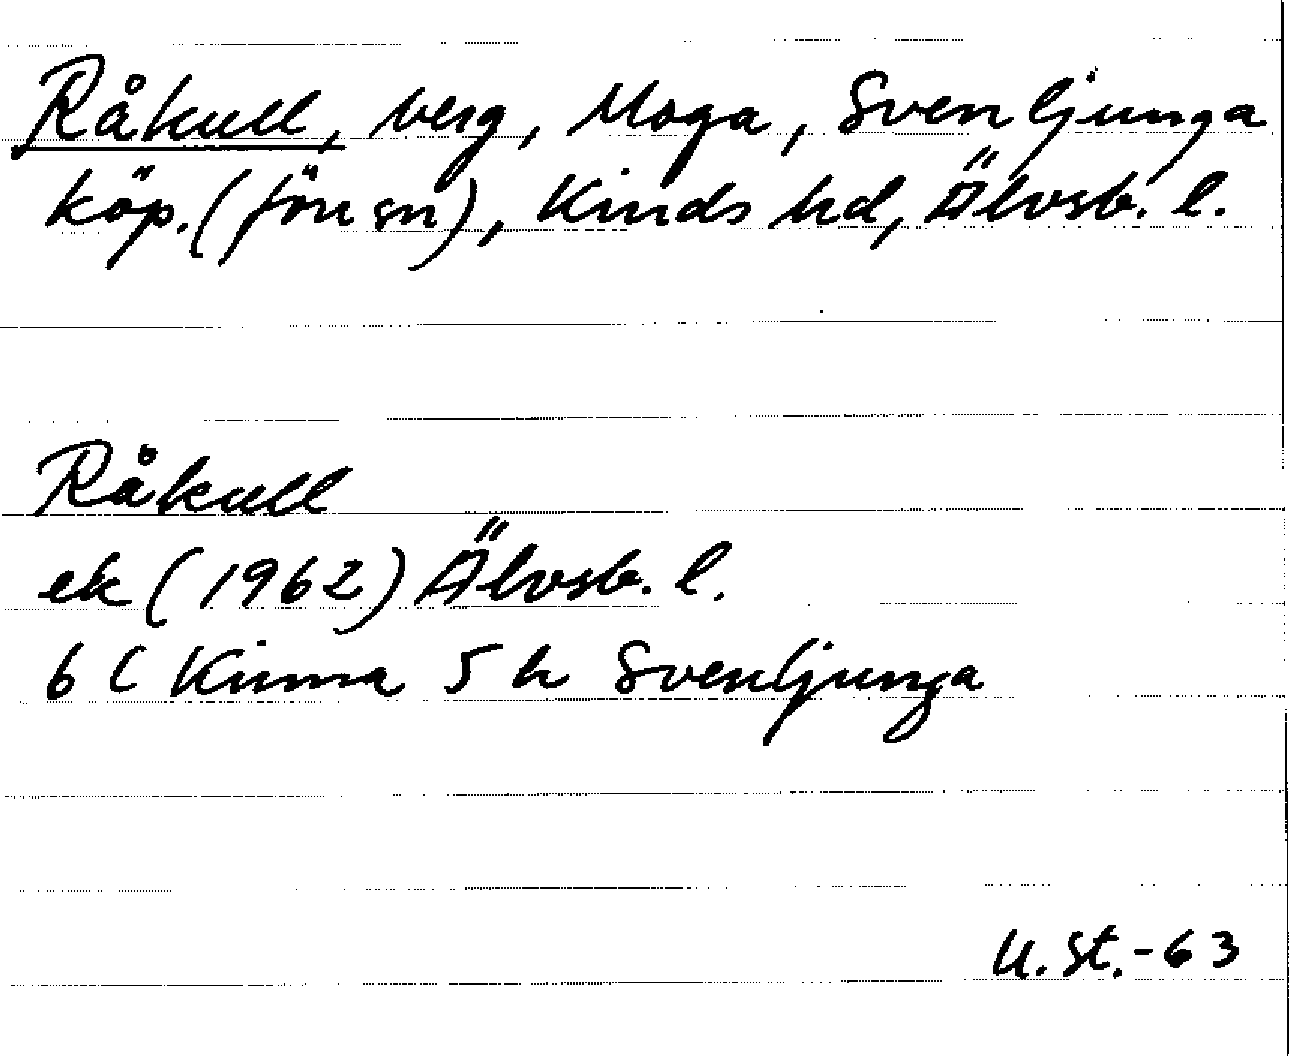 Råkull, berg, Moga, Svenljunga
köp. (förr sn), Kinds hd, Älvsb. l.
Råkull
ek (1962) Älvsb. l.
6 C Kinna 5 h Svenljunga
U. St. -63